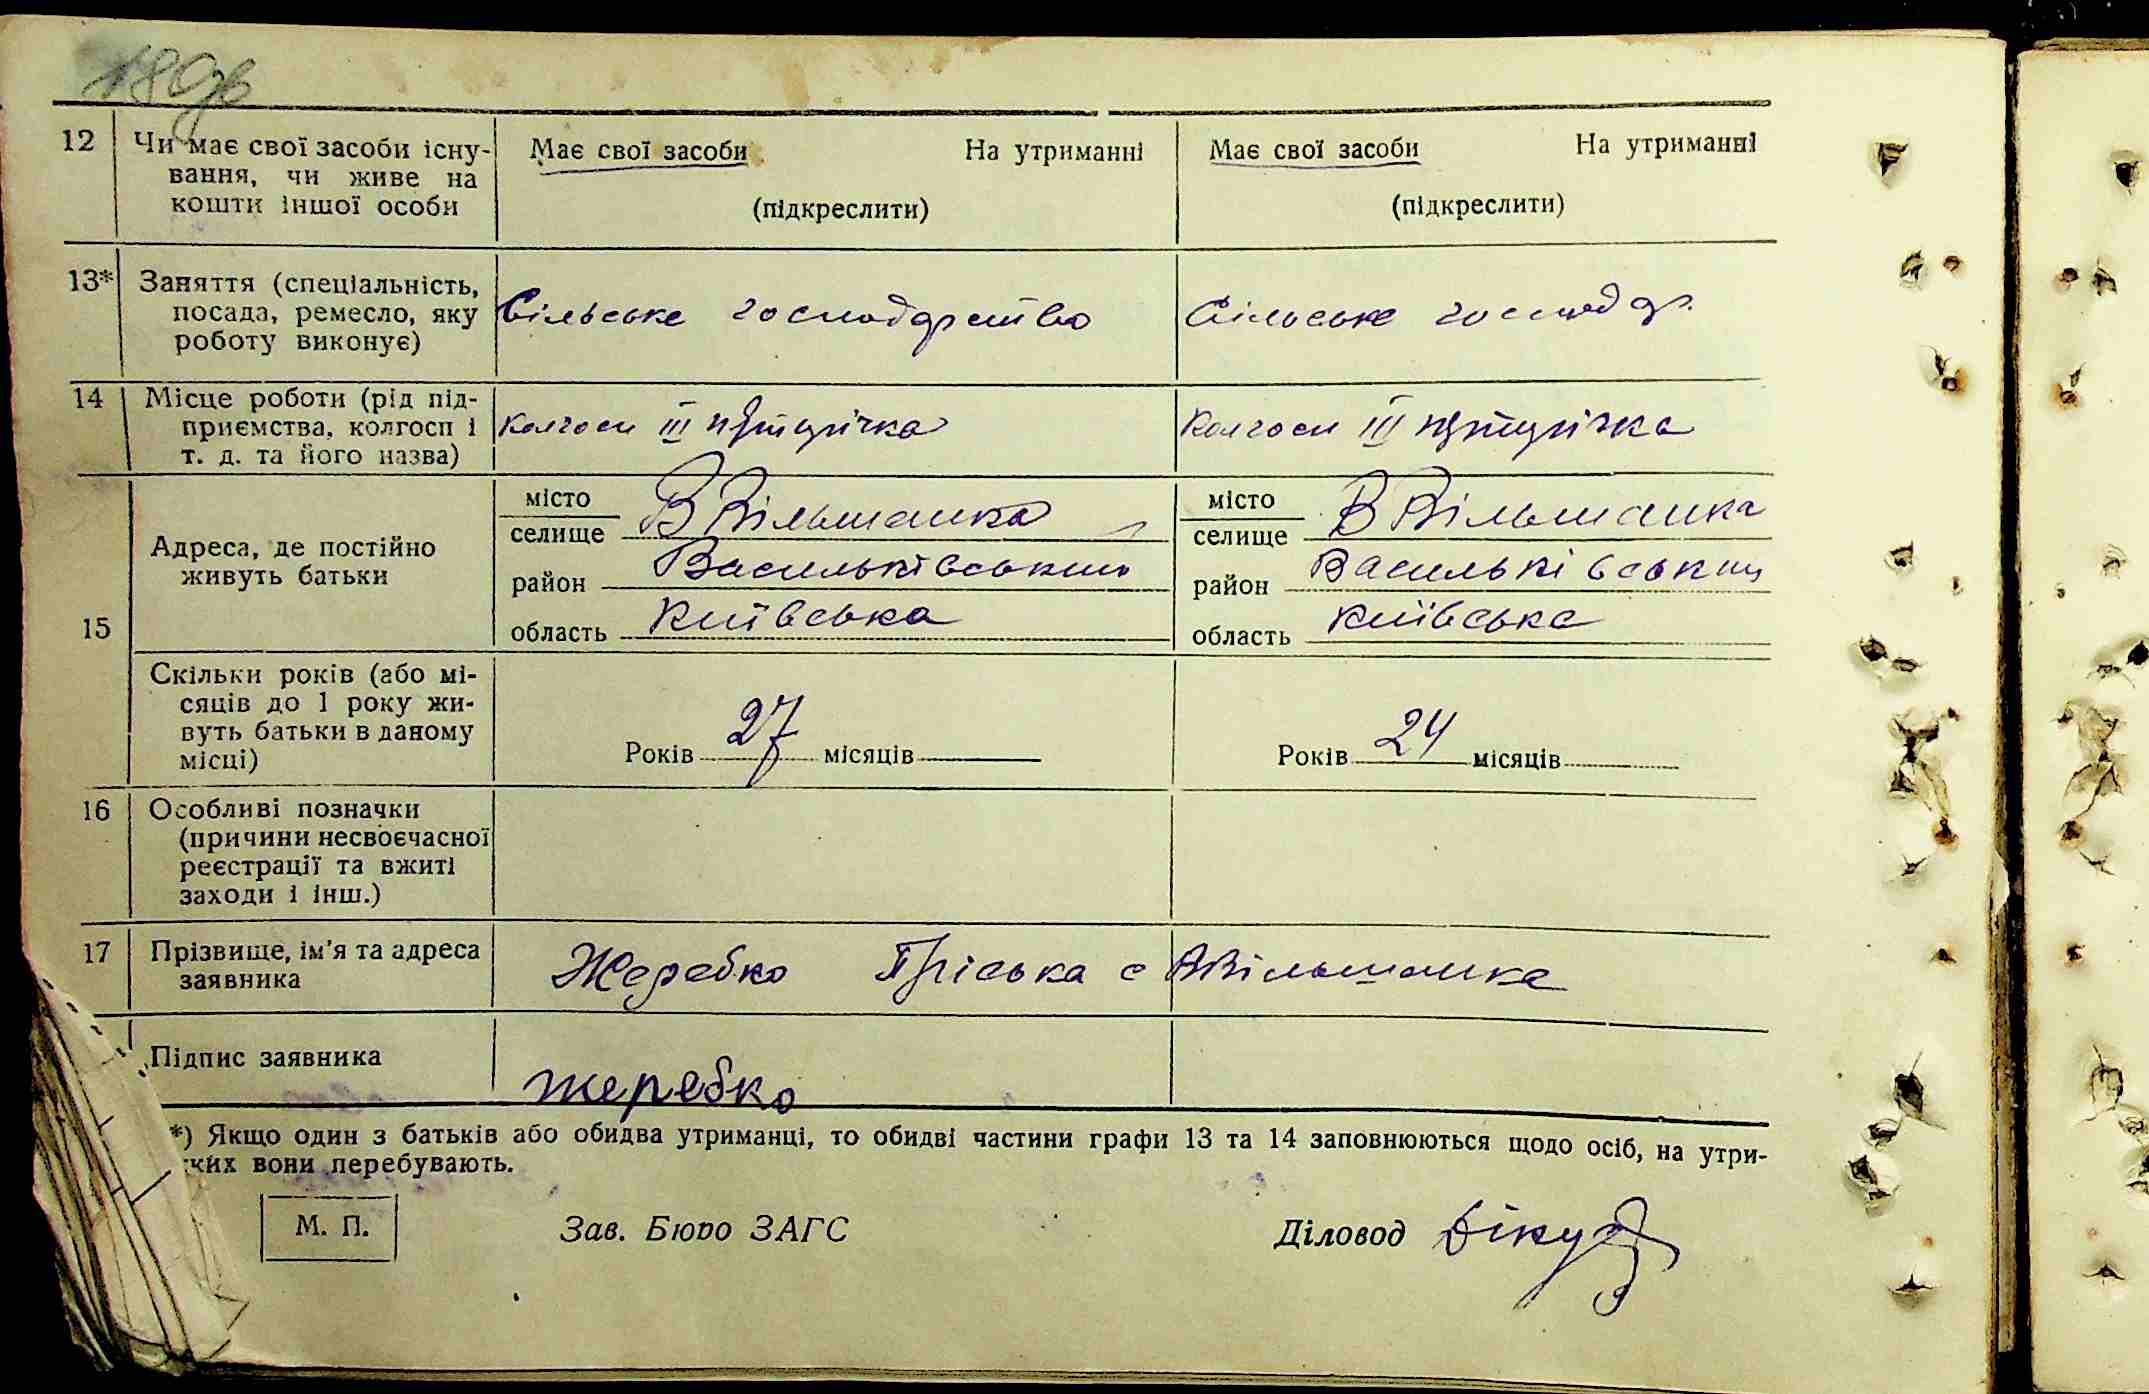 180зв
12 Чи має свої засоби існу- Має свої засоби На утриманні Має свої засоби На утриманні
вання, чи живе на
кошти іншої особи (підкреслити) (підкреслити)
13* Заняття (спеціальність,
посада, ремесло, яку Сільське господарство Сільське господар.
роботу виконує)
14 Місце роботи (рід під-
приємства, колгосп і колгосп III пятирічка колгосп III пятирічка
т. д. та його назва)
місто місто
селище В Вільшанка селище В Вільшанка
Адреса, де постійно
живуть батьки
район Васильківський район Васильківський
область Київська область Київська
15
Скільки років (або мі-
сяців до 1 року жи-
вуть батьки в даному
місці) Років 27 місяців Років 24 місяців
16 Особливі позначки
(причини несвоєчасної
реєстрації та вжиті
заходи і інш.)
17 Прізвище, ім'я та адреса
заявника Жеребко Пріська с ВВільшанка
Підпис заявника жеребко
*) Якщо один з батьків або обидва утриманці, то обидві частини графи 13 та 14 заповнюються щодо осіб, на утри-
яких вони перебувають.
М. П. Зав. Бюро ЗАГС Діловод